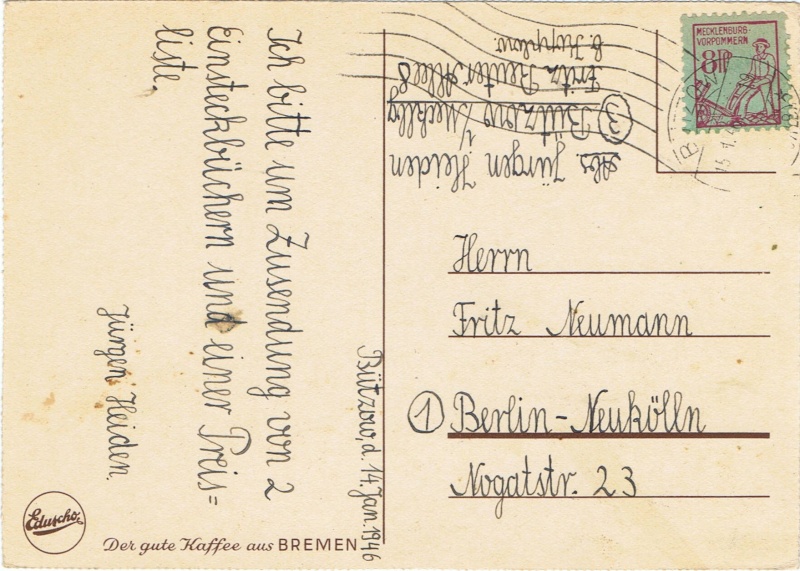 Bützow, d 14. Jan. 1946
Ich bitte um Zusendung von 2
Einsteckbüchern und einer Preis=
liste.
Jürgen Heiden.
Abs. Jürgen Heiden
③ Bützow i/ Mecklbg
Fritz Reuter Allee 8
b. Kopplow.
MECKLENBURG-
VORPOMMERN
8Pf
Herrn
Fritz Neumann
① Berlin-Neukölln
Nogatstr. 23
Eduscho
Der gute Kaffee aus BREMEN